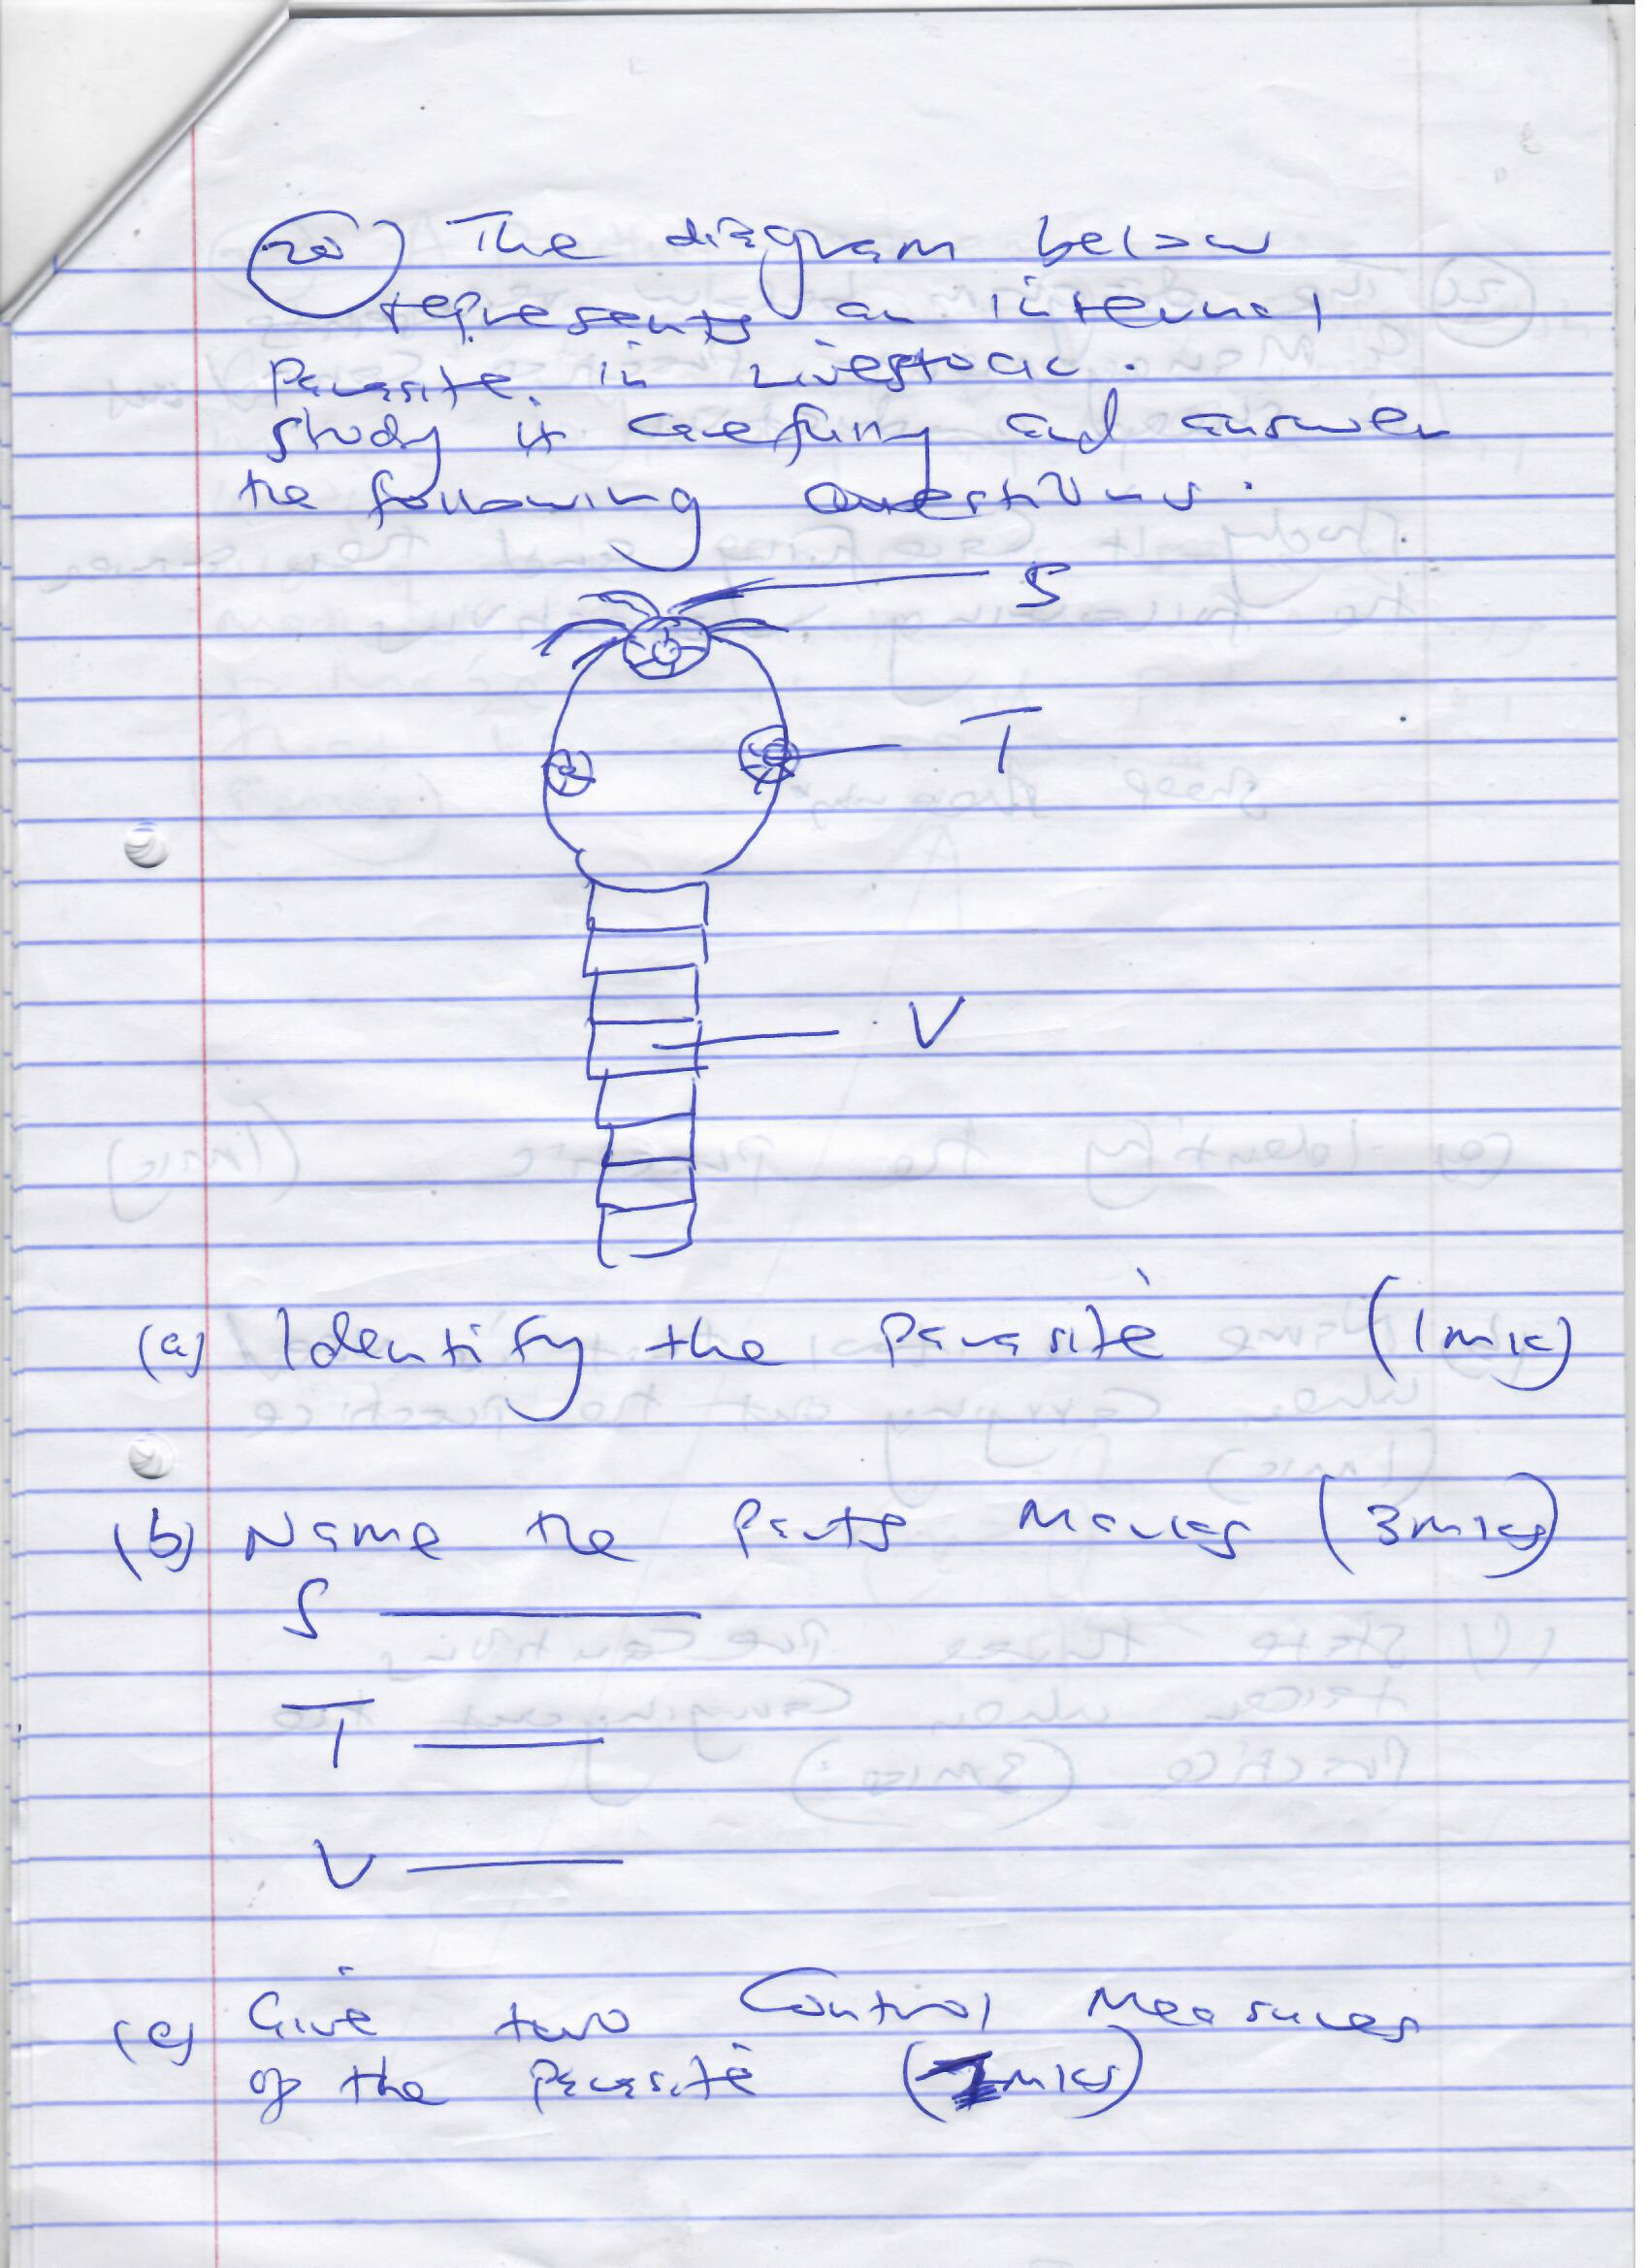 20) The diagram below
represents an internal
Parasite. in Livestock.
study it carefully and answer
the following Questions.
S
T
V
(a) Identify the parasite (1mk)
(b) Name the parts Marked (3mks)
S
T
V
(c) Give two Control Measures
of the parasite (mks)